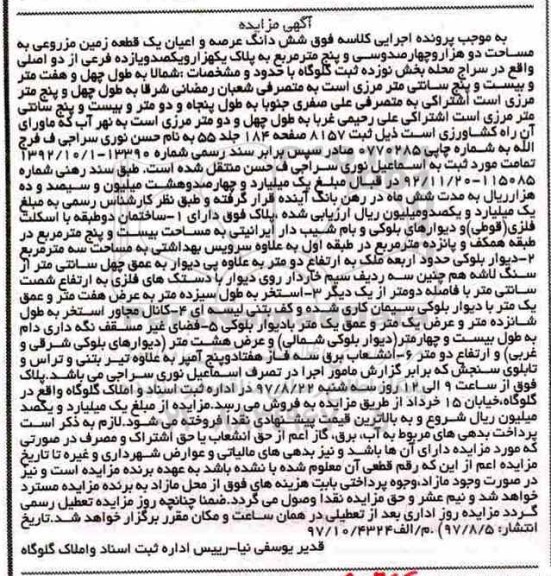 آگهی مزایده
به موجب پرونده اجرایی کلاسه فوق شش دانگ عرصه و اعیان یک قطعه زمین مزروعی به
مساحت دو هزاروچهارصدوسی و پنج مترمربع به پلاک یکهزارویکصدویازده فرعی از دو اصلی
واقع در سراج محله بخش نوزده ثبت گلوگاه با حدود و مشخصات :شمالا به طول چهل و هفت متر
و بیست و پنج سانتی متر مرزی است به متصرفی شعبان رمضانی شرقا به طول چهل و پنج متر
مرزی است اشتراکی به متصرفی علی صفری جنوبا به طول پنجاه و دو متر و بیست و پنج سانتی
متر مرزی است اشتراکی علی رحیمی غربا به طول چهل و دو متر مرزی است به نهر آب که ماورای
آن راه کشاورزی است ذیل ثبت ۸۱۵۷ صفحه ۱۸۴ جلد ۵۵ به نام حسن نوری سراجی ف فرج
الله به شماره چاپی۰۷۷۰۲۸۵ صادر سپس برابر سند رسمی شماره ۱۳۳۹۰-۱۳۹۲/۱۰/۱
تمامت مورد ثبت به اسماعیل نوری سراجی ف حسن منتقل شده است. طبق سند رهنی شماره
۱۱۵۰۸۵-۹۲/۱۱/۲۰ در قبال مبلغ یک میلیارد و چهارصدوهشت میلیون و سیصد و ده
هزارریال به مدت شش ماه در رهن بانک آینده قرار گرفته و طبق نظر کارشناس رسمی به مبلغ
یک میلیارد و یکصدمیلیون ریال ارزیابی شده .پلاک فوق دارای ۱-ساختمان دوطبقه با اسکلت
فلزی(قوطی)و دیوارهای بلوکی و بام شیب دار ایرانیتی به مساحت بیست و پنج مترمربع در
طبقه همکف و پانزده مترمربع در طبقه اول به علاوه سرویس بهداشتی به مساحت سه مترمربع
۲-دیوار بلوکی حدود اربعه ملک به ارتفاع دو متر به علاوه پی دیوار به عمق چهل سانتی متر از
سنگ لاشه هم چنین سه ردیف سیم خاردار روی دیوار با دستک های فلزی به ارتفاع شصت
سانتی متر با فاصله دومتر از یک دیگر ۳-استخر به طول سیزده متر به عرض هفت متر و عمق
یک متر با دیوار بلوکی سیمان کاری شده و کف بتنی لیسه ای ۴-کانال مجاور استخر به طول
شانزده متر و عرض یک متر و عمق یک متر بادیوار بلوکی ۵-فضای غیر مسقف نگه داری دام
به طول بیست و چهارمتر(دیوار بلوکی شمالی) و عرض هشت متر (دیوارهای بلوکی شرقی و
غربی) و ارتفاع دو متر ۶-انشعاب برق سه فاز هفتادوپنج آمپر به علاوه تیر بتنی و تراس و
تابلوی سنجش که برابر گزارش مامور اجرا در تصرف اسماعیل نوری سراجی می باشد.پلاک
فوق از ساعت ۹ الی ۱۲ روز سه شنبه ۹۷/۸/۲۲ در اداره ثبت اسناد و املاک گلوگاه واقع در
گلوگاه،خیابان ۱۵ خرداد از طریق مزایده به فروش می رسد.مزایده از مبلغ یک میلیارد و یکصد
میلیون ریال شروع و به بالاترین قیمت پیشنهادی نقدا فروخته می شود.لازم به ذکر است
پرداخت بدهی های مربوط به آب، برق، گاز اعم از حق انشعاب یا حق اشتراک و مصرف در صورتی
که مورد مزایده دارای آن ها باشد و نیز بدهی های مالیاتی و عوارض شهرداری و غیره تا تاریخ
مزایده اعم از این که رقم قطعی آن معلوم شده یا نشده باشد به عهده برنده مزایده است و نیز
در صورت وجود مازاد،وجوه پرداختی بابت هزینه های فوق از محل مازاد به برنده مزایده مسترد
خواهد شد و نیم عشر و حق مزایده نقدا وصول می گردد.ضمنا چنانچه روز مزایده تعطیل رسمی
گردد مزایده روز اداری بعد از تعطیلی در همان ساعت و مکان مقرر برگزار خواهد شد.تاریخ
انتشار: ۹۷/۸/۵) .م/الف۹۷/۱۰/۴۳۲۴
قدیر یوسفی نیا-رییس اداره ثبت اسناد واملاک گلوگاه